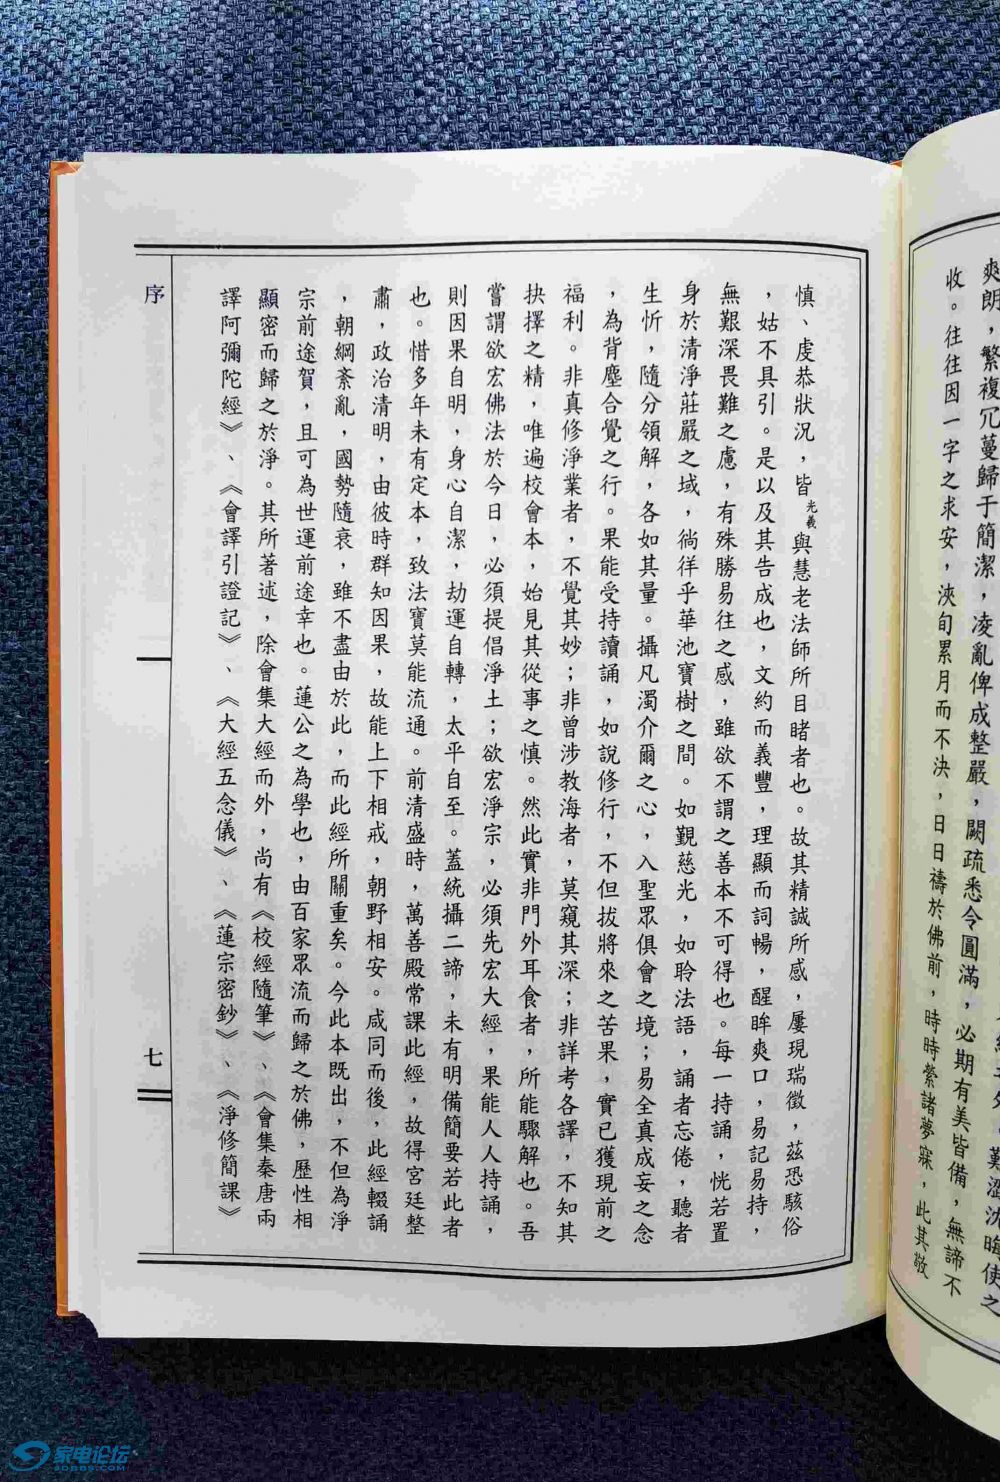 爽朗，繁複冗蔓歸于簡潔，凌亂俾成整嚴，闕疏悉令圓滿，必期有美皆備，無諦不
收。往往因一字之求安，浹旬累月而不決，日日禱於佛前，時時縈諸夢寐，此其敬
慎、虔恭狀況，皆光羲與慧老法師所目睹者也。故其精誠所感，屢現瑞徵，茲恐駭俗
，姑不具引。是以及其告成也，文約而義豐，理顯而詞暢，醒眸爽口，易記易持，
無艱深畏難之慮，有殊勝易往之感，雖欲不謂之善本不可得也。每一持誦，恍若置
身於清淨莊嚴之域，徜徉乎華池寶樹之間。如覲慈光，如聆法語，誦者忘倦，聽者
生忻，隨分領解，各如其量。攝凡濁介爾之心，入聖眾俱會之境；易全真成妄之念
，為背塵合覺之行。果能受持讀誦，如說修行，不但拔將來之苦果，實已獲現前之
福利。非真修淨業者，不覺其妙；非曾涉教海者，莫窺其深；非詳考各譯，不知其
抉擇之精，唯遍校會本，始見其從事之慎。然此實非門外耳食者，所能驟解也。吾
嘗謂欲宏佛法於今日，必須提倡淨土；欲宏淨宗，必須先宏大經，果能人人持誦，
則因果自明，身心自潔，劫運自轉，太平自至。蓋統攝二諦，未有明備簡要若此者
也。惜多年未有定本，致法寶莫能流通。前清盛時，萬善殿常課此經，故得宮廷整
肅，政治清明，由彼時群知因果，故能上下相戒，朝野相安。咸同而後，此經輟誦
，朝綱紊亂，國勢隨衰，雖不盡由於此，而此經所關重矣。今此本既出，不但為淨
宗前途賀，且可為世運前途幸也。蓮公之為學也，由百家眾流而歸之於佛，歷性相
顯密而歸之於淨。其所著述，除會集大經而外，尚有《校經隨筆》、《會集秦唐兩
譯阿彌陀經》、《會譯引證記》、《大經五念儀》、《蓮宗密鈔》、《淨修簡課》
序
七
家电论坛
JDBBS.COM